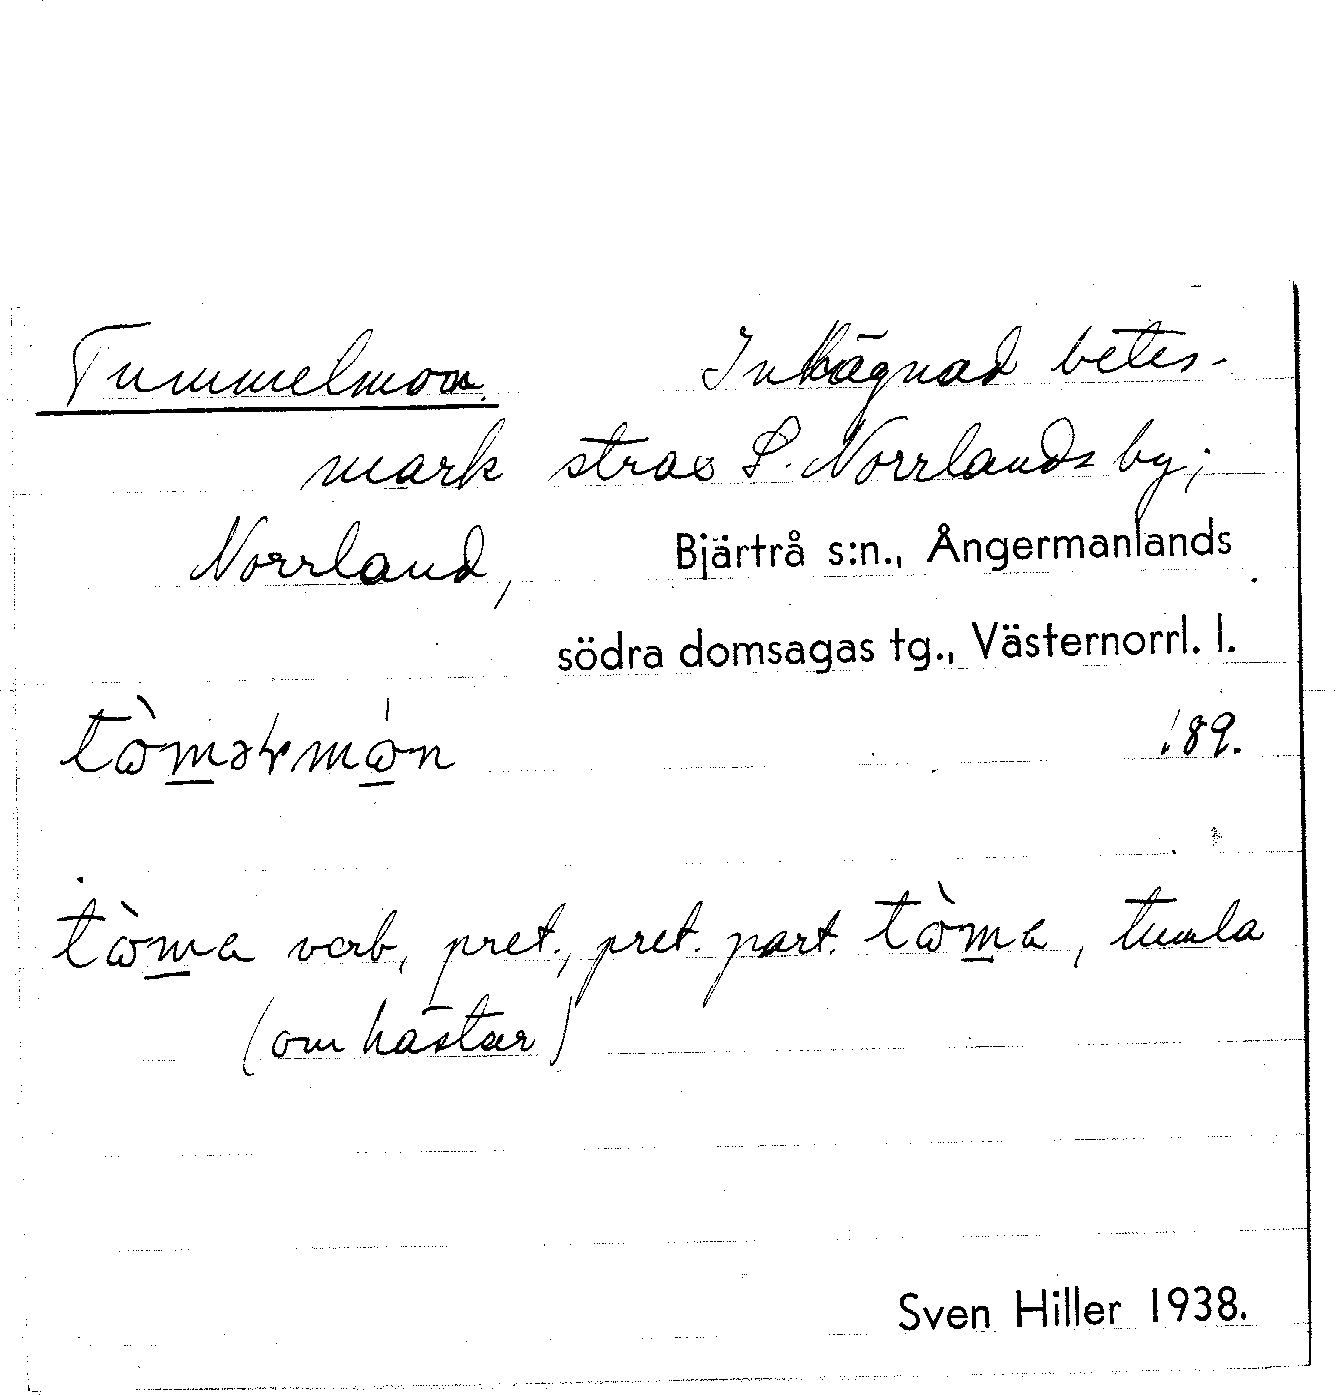 Tummelmon. Inhägnad betes-
mark strax S. Norrlands by;
Norrland, Bjärtrå s:n., Ångermanlands
södra domsagas tg., Västernorrl. l.
189.
verb, pret., pret. part. tumla
(om hästar)
Sven Hiller 1938.